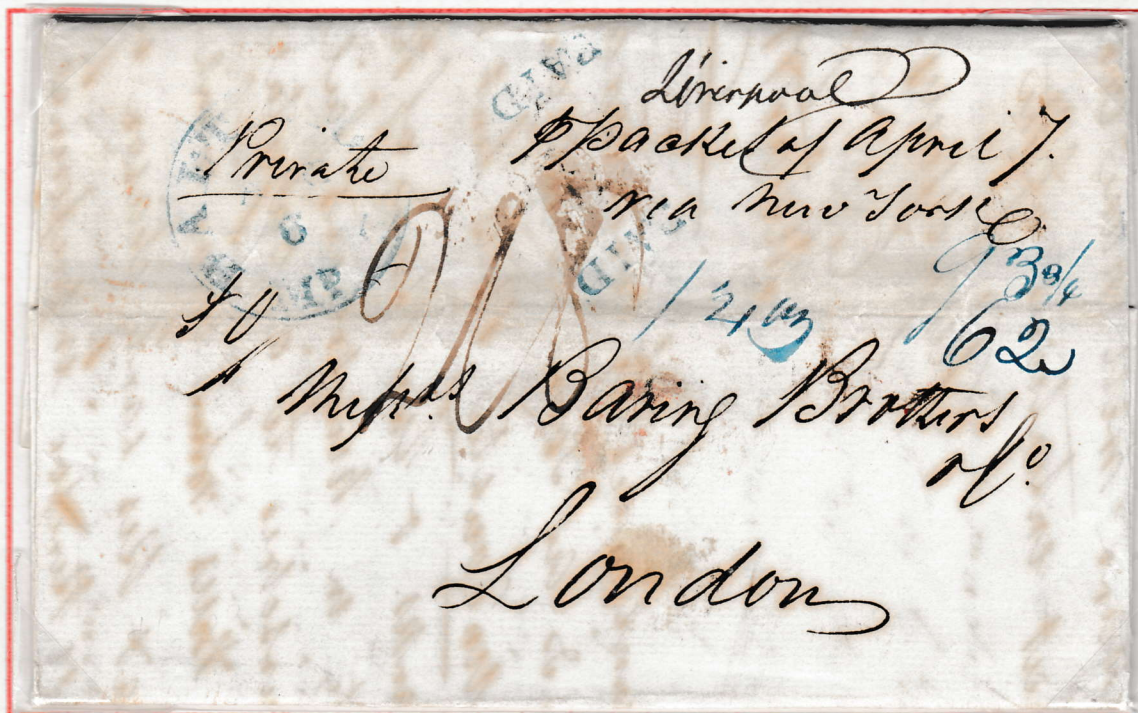 Liverpool
Private
⅌ Packet of April 7.
via New York
PAID
PAID
93¾
62
Mess.rs Baring Brothers
& Co.
London